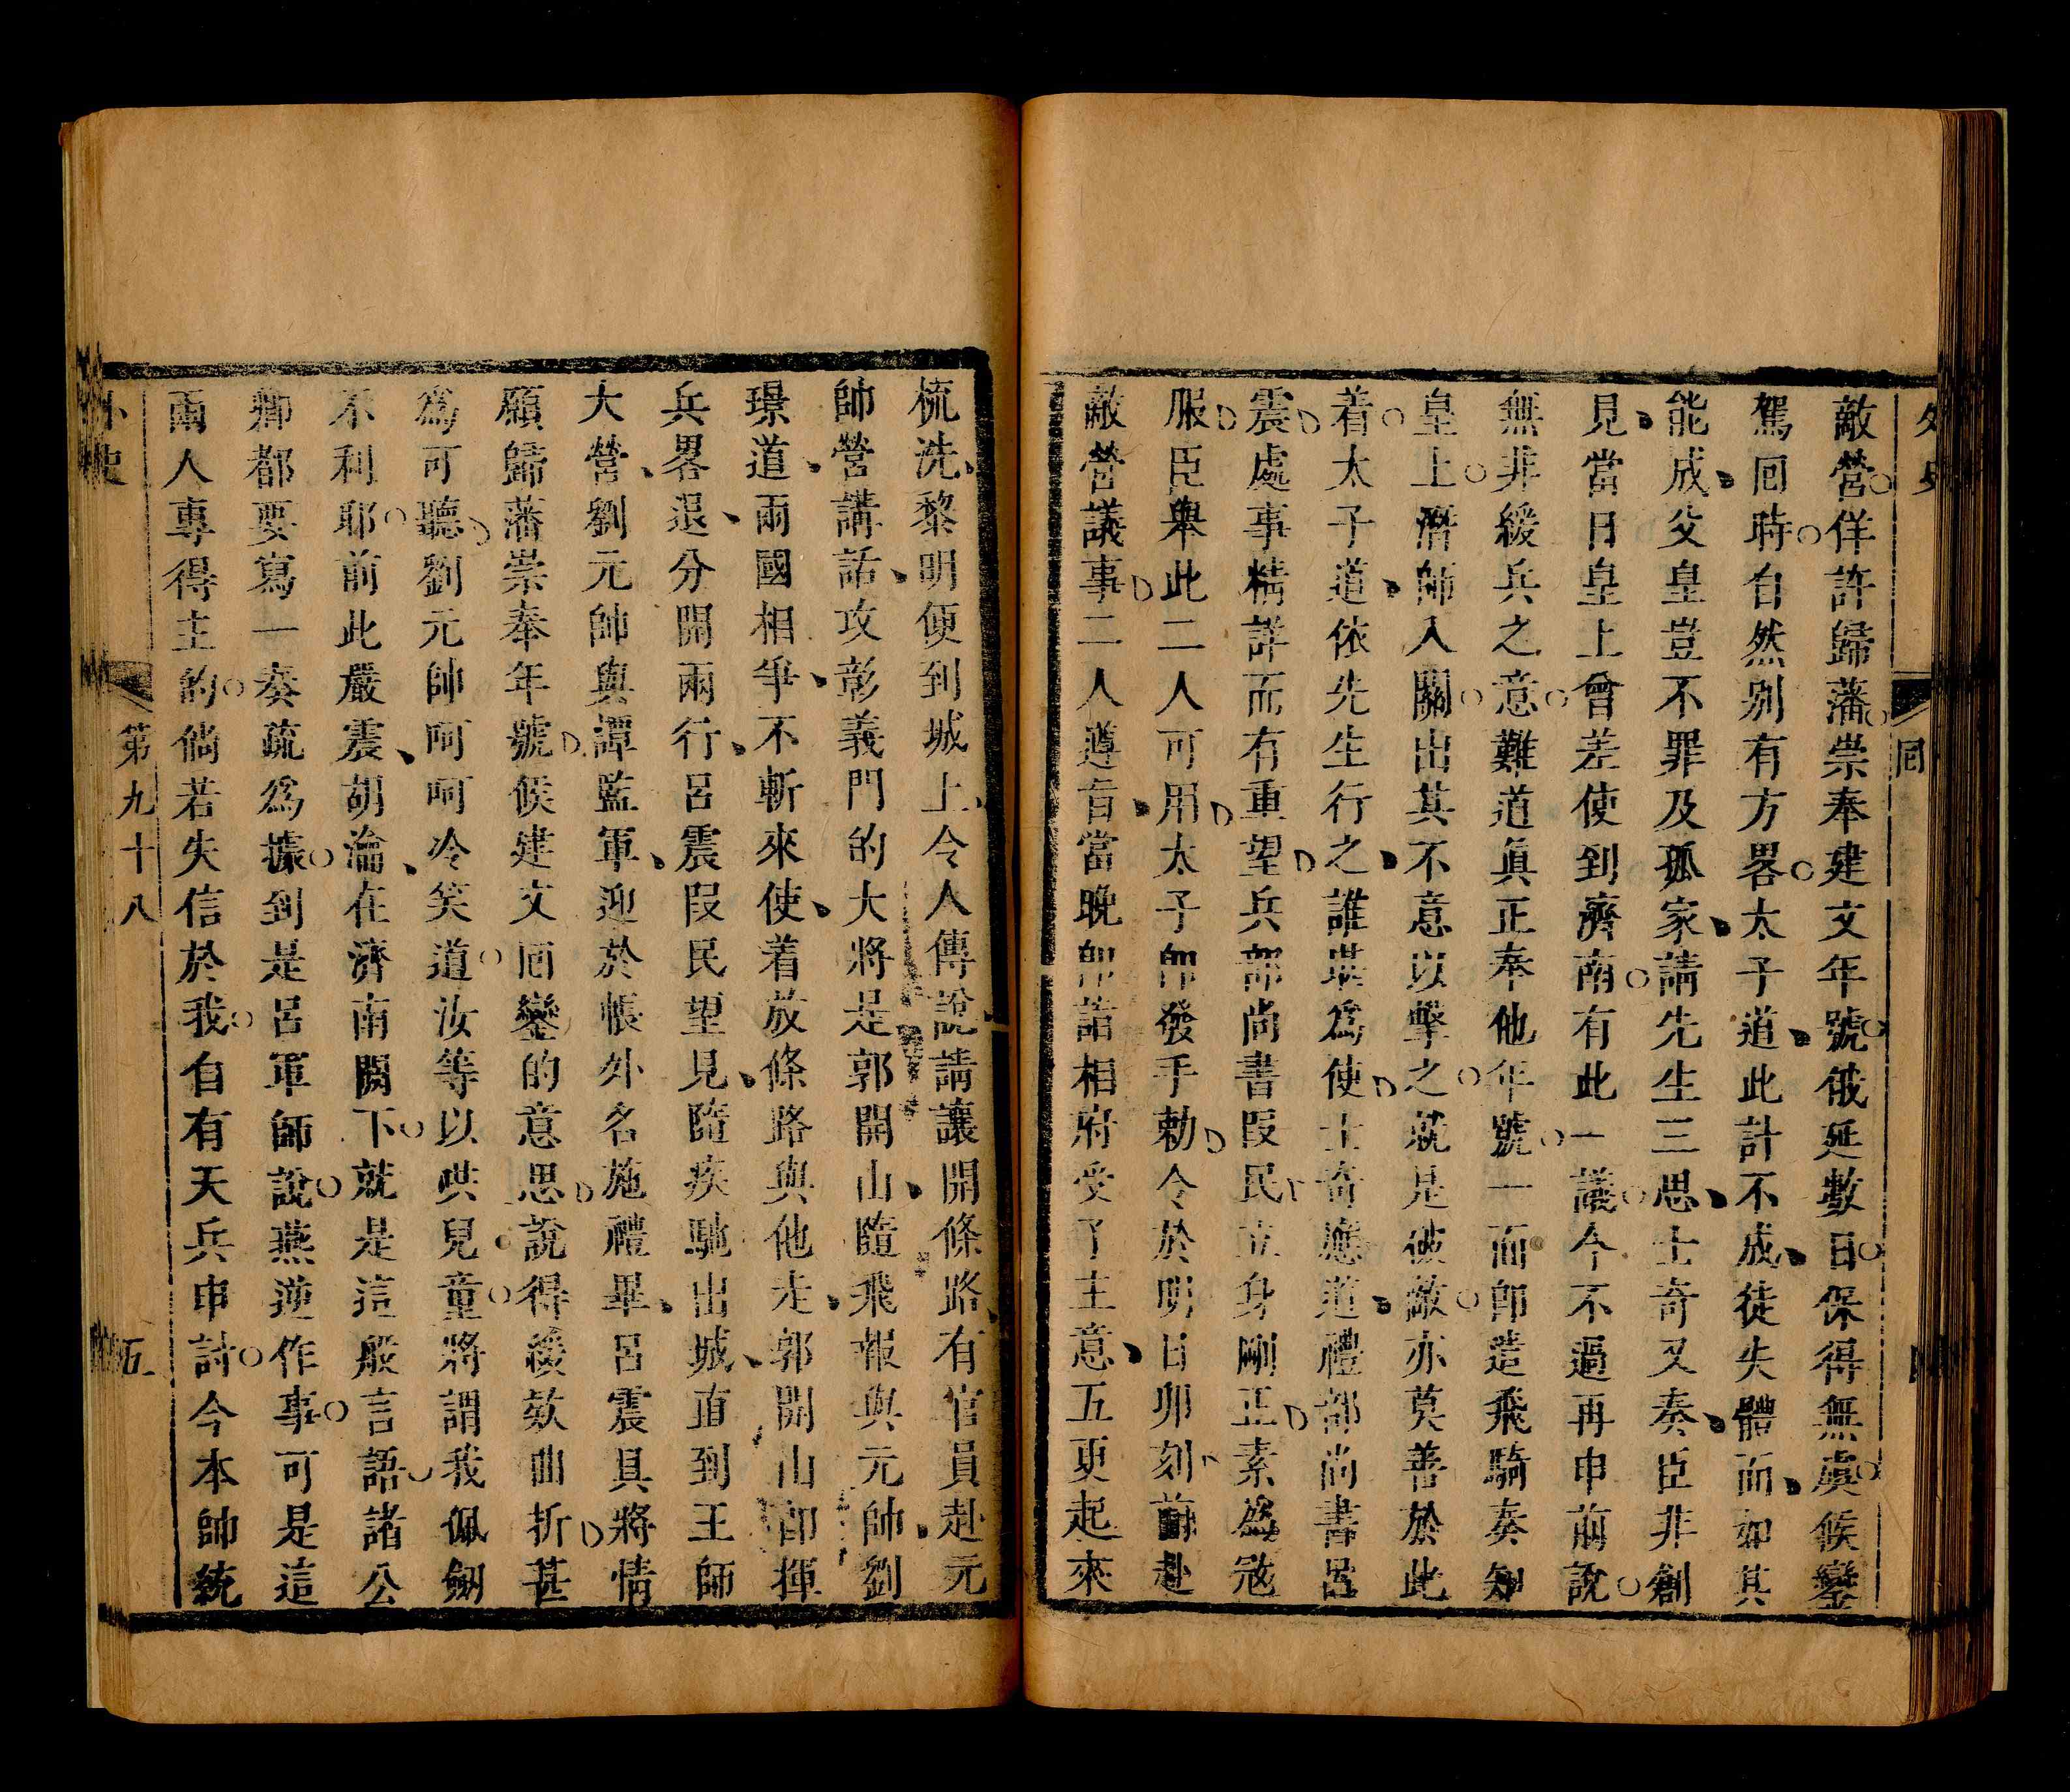 外史
回
敵營佯許歸藩崇奉建文年號俄延數日保得無虞候鑾
駕囘時自然别有方畧太子道此計不成徒失體而如其
能成父皇豈不罪及孤家請先生三思士奇又奏臣非創
見當日皇上曾差使到濟南有此一議今不過再申前說
無非緩兵之意難道眞正奉他年號一面卽造飛騎奏知
皇上潛師入關出其不意以擊之就是破敵亦莫善於此
着太子道依先生行之誰堪爲使士奇應道禮部尚書呂
震處事精詳而有重望兵部尚書叚民立身剛正素爲冦
服臣舉此二人可用太子卽發手勅令於明日卯刻前赴
敵營議事二人遵旨當晚卽詣相府受了主意五更起來
梳洗黎明便到城上令人傳說請讓開條路有官員赴元
帥營講話攻彰義門的大將是郭開山隨飛報與元帥劉
璟道兩國相爭不斬來使着放條路與他走郭開山卽揮
兵畧退分開兩行呂震叚民望見隨疾馳出城直到王師
大營劉元帥與譚監軍迎於帳外名施禮畢呂震具將情
願歸藩崇奉年號候建文囘鑾的意思說得緩欵曲折甚
爲可聽劉元帥呵呵冷笑道汝等以哄兒童將謂我佩劒
不利耶前此嚴震胡瀹在濟南闕下就是這般言語諸公
卿都要寫一奏疏爲據到是呂軍師說燕逆作事可是這
兩人專得主的倘若失信於我自有天兵申討今本帥統
外史
第九十八
五